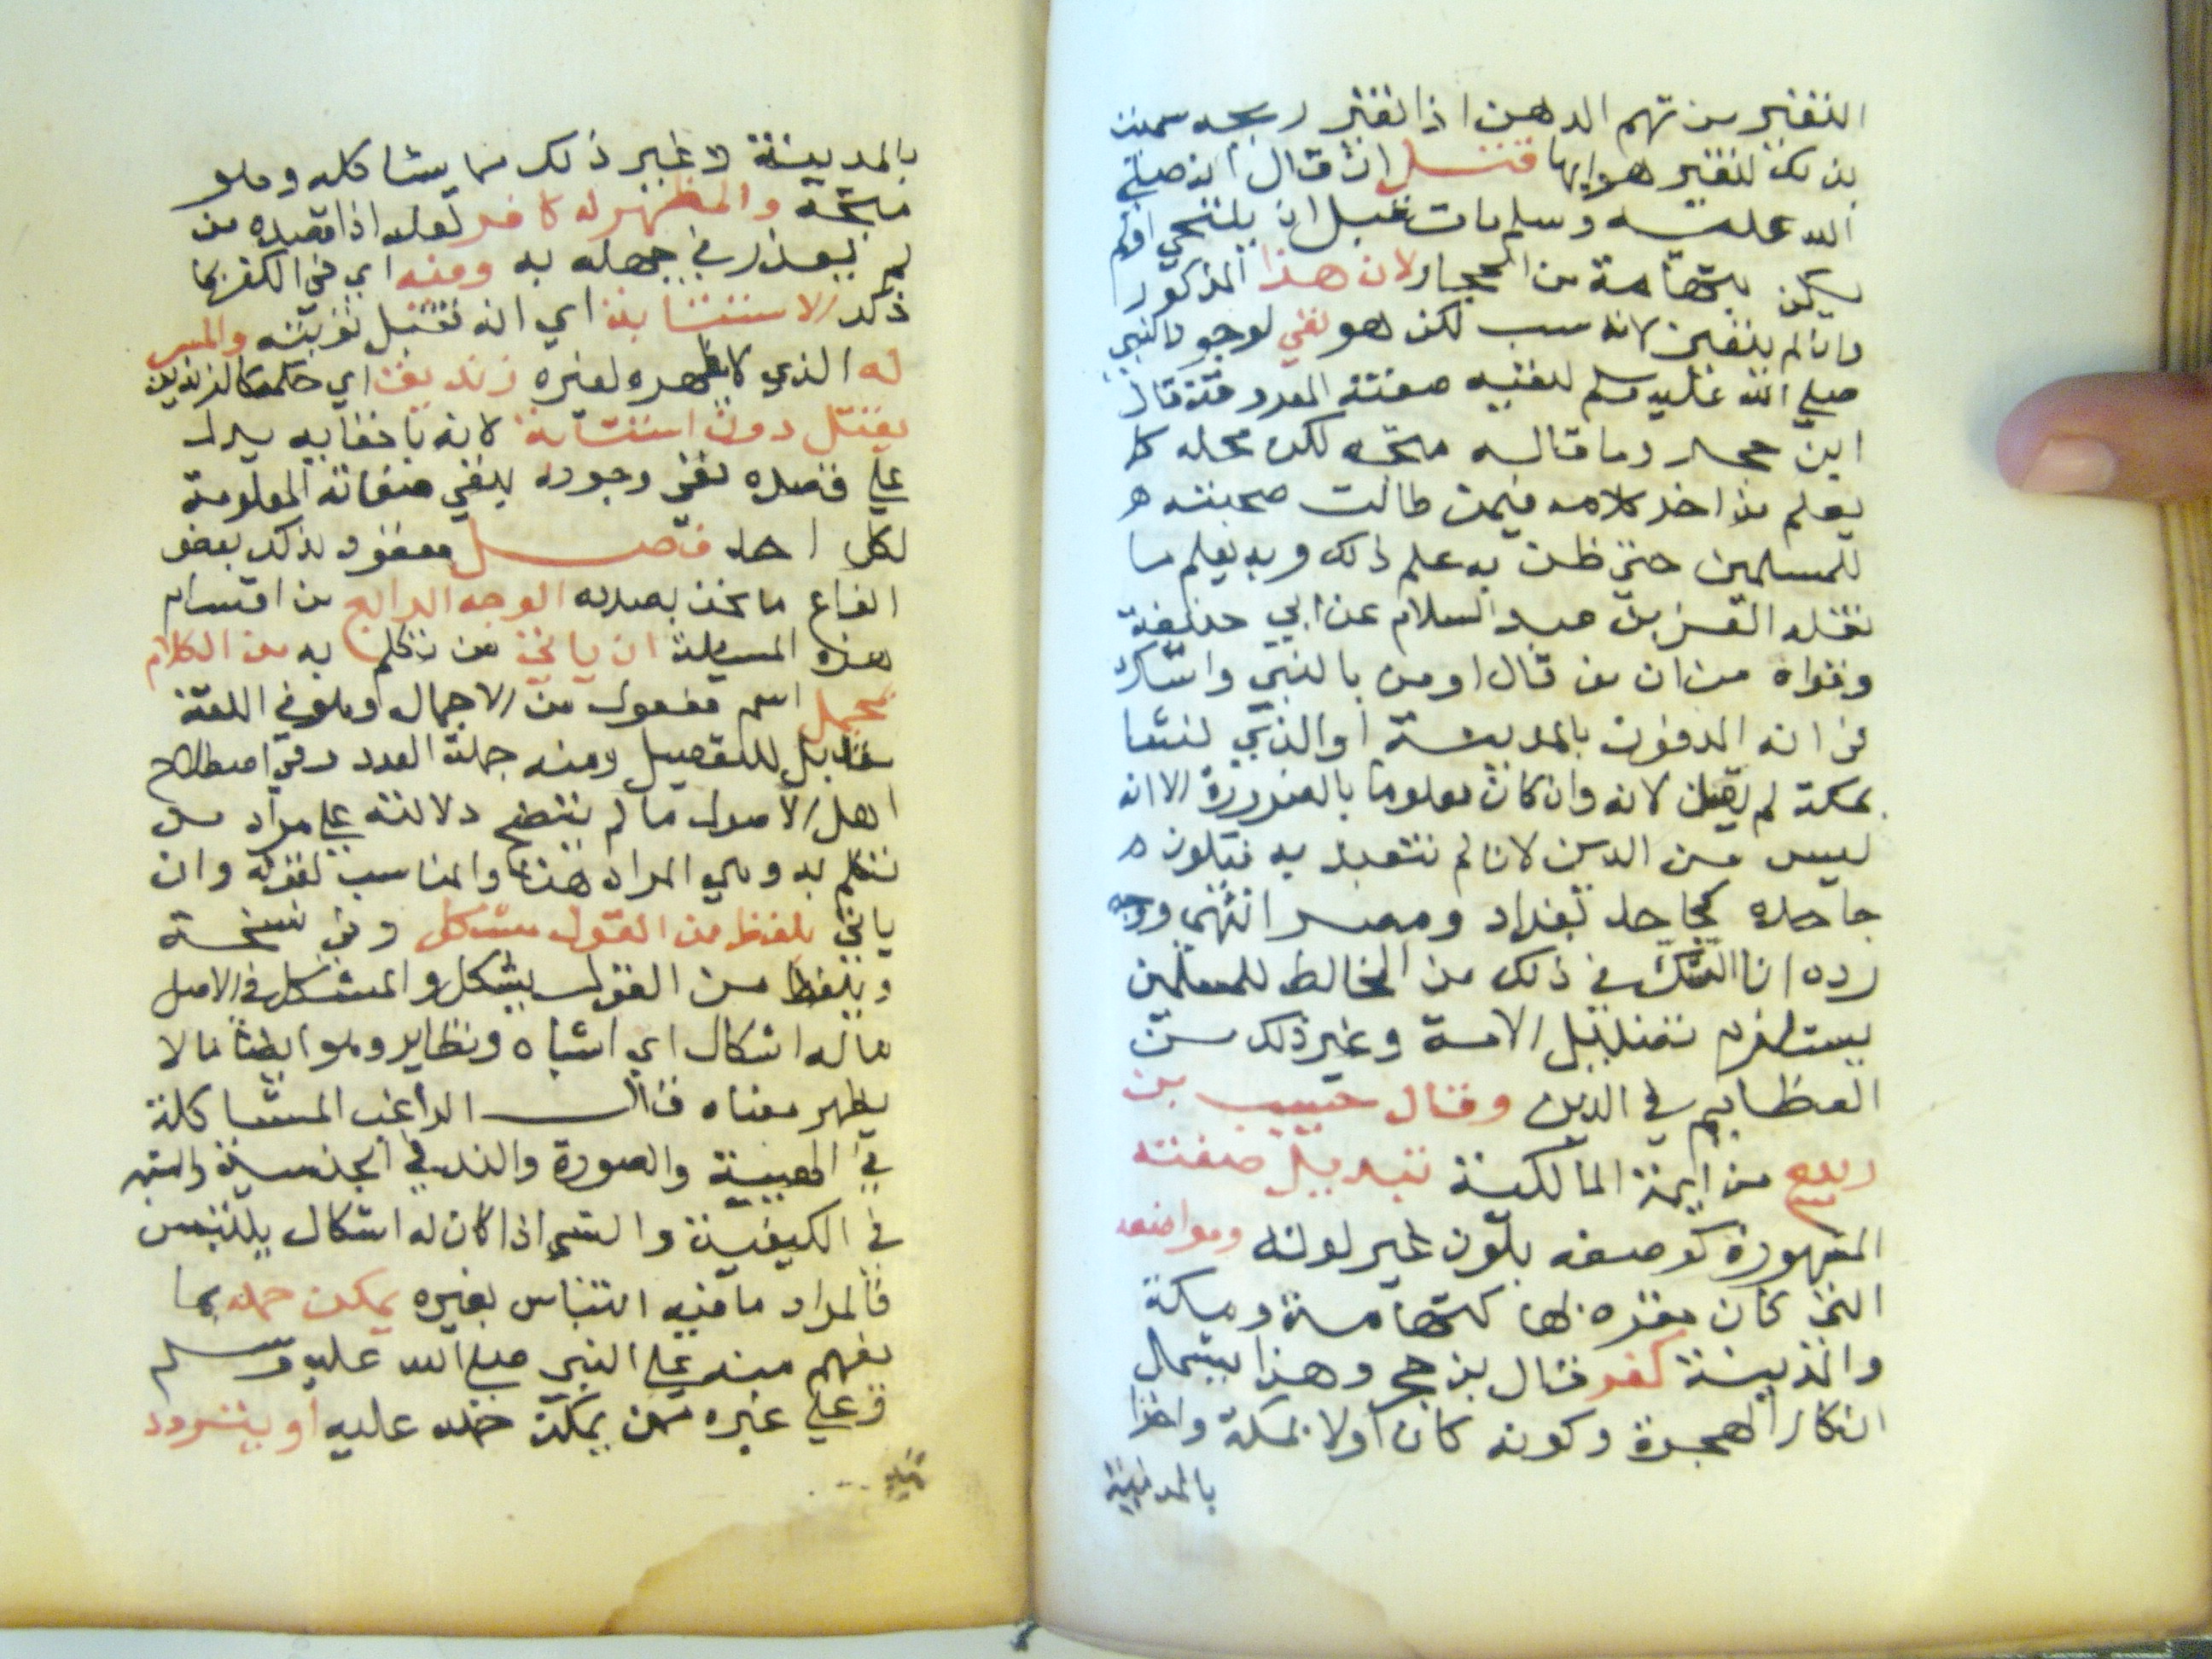 التغير من تهم الدهن اذا تغير ريحه سميت
بذلك لتغير هوايها قتل ان قال انه صلى
الله عليه وسلم مات قبل ان يلتحي او لم
يكن بتهامة من الحجاز لان هذا المذكور
وان لم يتغير لانه سب لكن هو نفي لوجود النبي
صلى الله عليه وسلم لنفيه صفته المعروفة قال
ابن حجر وما قاله متجه لكن محله كما
يعلم من اخر كلامه فيمن طالت صحبته
للمسلمين حتى ظن به علم ذلك وبه يعلم ما
نقله العز بن عبد السلام عن ابي حنيفة
وقواه من ان من قال اومن بالنبي واشك
في انه المدفون بالمدينة او الذي نشا
بمكة لم يكفر لانه وان كان معلوما بالضرورة الا انه
ليس من الدين لانا لم نتعبد به فيكون
جاحده كجاحد بغداد ومصر انتهى ووجه
رده ان الشك في ذلك من المخالط للمسلمين
يستلزم تضليل الامة وغير ذلك من
العظايم في الدين وقال حبيب بن
ربيع من ايمة المالكية تبديل صفته
المشهورة كوصفه بلون غير لونه ومواضعه
التي كان مقره بها كتهامة ومكة
والمدينة كفر قال بن حجر وهذا يشمل
انكار الهجرة وكونه كان اولا بمكة واخرا
بالمدينة
بالمدينة وغير ذلك مما يشاكله وهو
متجه والمظهر له كافر لعله اذا قصده من
لم يعذر في جهله به ومنه اي في الكفر بما
ذكر الاستتابة اي انه تقبل توبته والمسر
له الذي لا يظهره لغيره زنديق اي حكمه كالزنديق
يقتل دون استتابة لانه باخفايه يدل
على قصده نفي وجوده بنفي صفاته المعلومة
لكل احد فصل معقود لذكر بعض
انواع ما نحن بصدده الوجه الرابع من اقسام
هذه المسيلة ان ياتي من تكلم به من الكلام
بمجمل اسم مفعول من الاجمال وهو في اللغة
مقابل للتفصيل ومنه جملة العدد وفي اصطلاح
اهل الاصول ما لم يتضح دلالته على مراد من
تكلم به وهي المراد هنا والمناسب لقوله وان
ياتي بلفظ من القول مشكل وفي نسخة
ويلفظ من القول بمشكل والمشكل في الاصل
ما له اشكال اي اشباه ونظاير وهو ايضا ما لا
يظهر معناه قال الراغب المشاكلة
في الهيية والصورة والند في الجنسية والشبه
في الكيفية والشي اذا كان له اشكال يلتبس
فالمراد ما فيه التباس بغيره يمكن حمله بما
يفهم منه على النبي صلى الله عليه وسلم
وعلى غيره ممن يمكن حمله عليه او يتردد